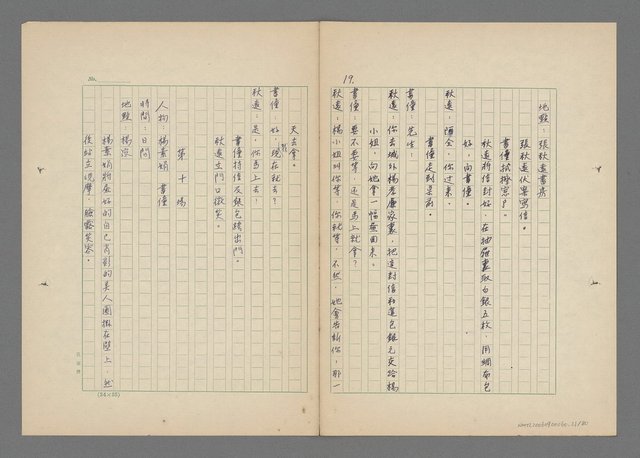 19.
地點：張秋遠書房
張秋遠伏案寫信。
書僮拭擦窗戶。
秋遠將信封好，在抽屜裏取白銀五枚，用綢布包
好，向書僮。
秋遠：你過來。
書僮走到桌前。
書僮：先生！
秋遠：你去城外楊孝廉家裏，把這封信和這包銀元交給楊
小姐，向她拿一幅畫回來。
書僮：要不要等，還是馬上就拿？
秋遠：楊小姐叫你等，你就等，不然，她會告訴你，那一
天去拿。
書僮：好，我現在就去？
秋遠：是，你馬上去！
書僮持信及銀包跨出門。
秋遠立門口微笑。
第十場
人物：楊素娟 書僮
時間：日間
地點：楊家
楊素娟將畫好的自己肖影的美人圖掛在壁上，然
後站立觀摩，臉露笑容。
No.
(24×25)